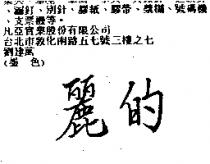 、漏釘、別針、膠紙、膠帶、漿糊、號碼機
、支票機等。
凡亞實業股份有限公司
台北市敦化南路五七號三樓之七
劉建萬
(墨 色)
麗的